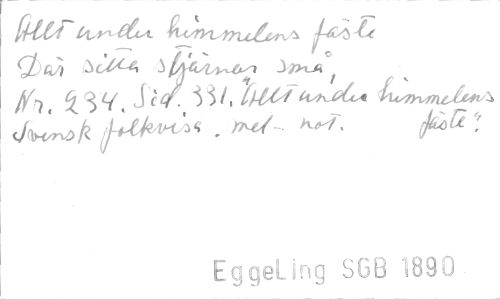 Allt under himmelens fäste
Där sitta stjärnor små,
Nr. 234. Sid. 331. "Allt under himmelens
Svensk folkvisa. mel- not. fäste".
EggeLing SGB 1890